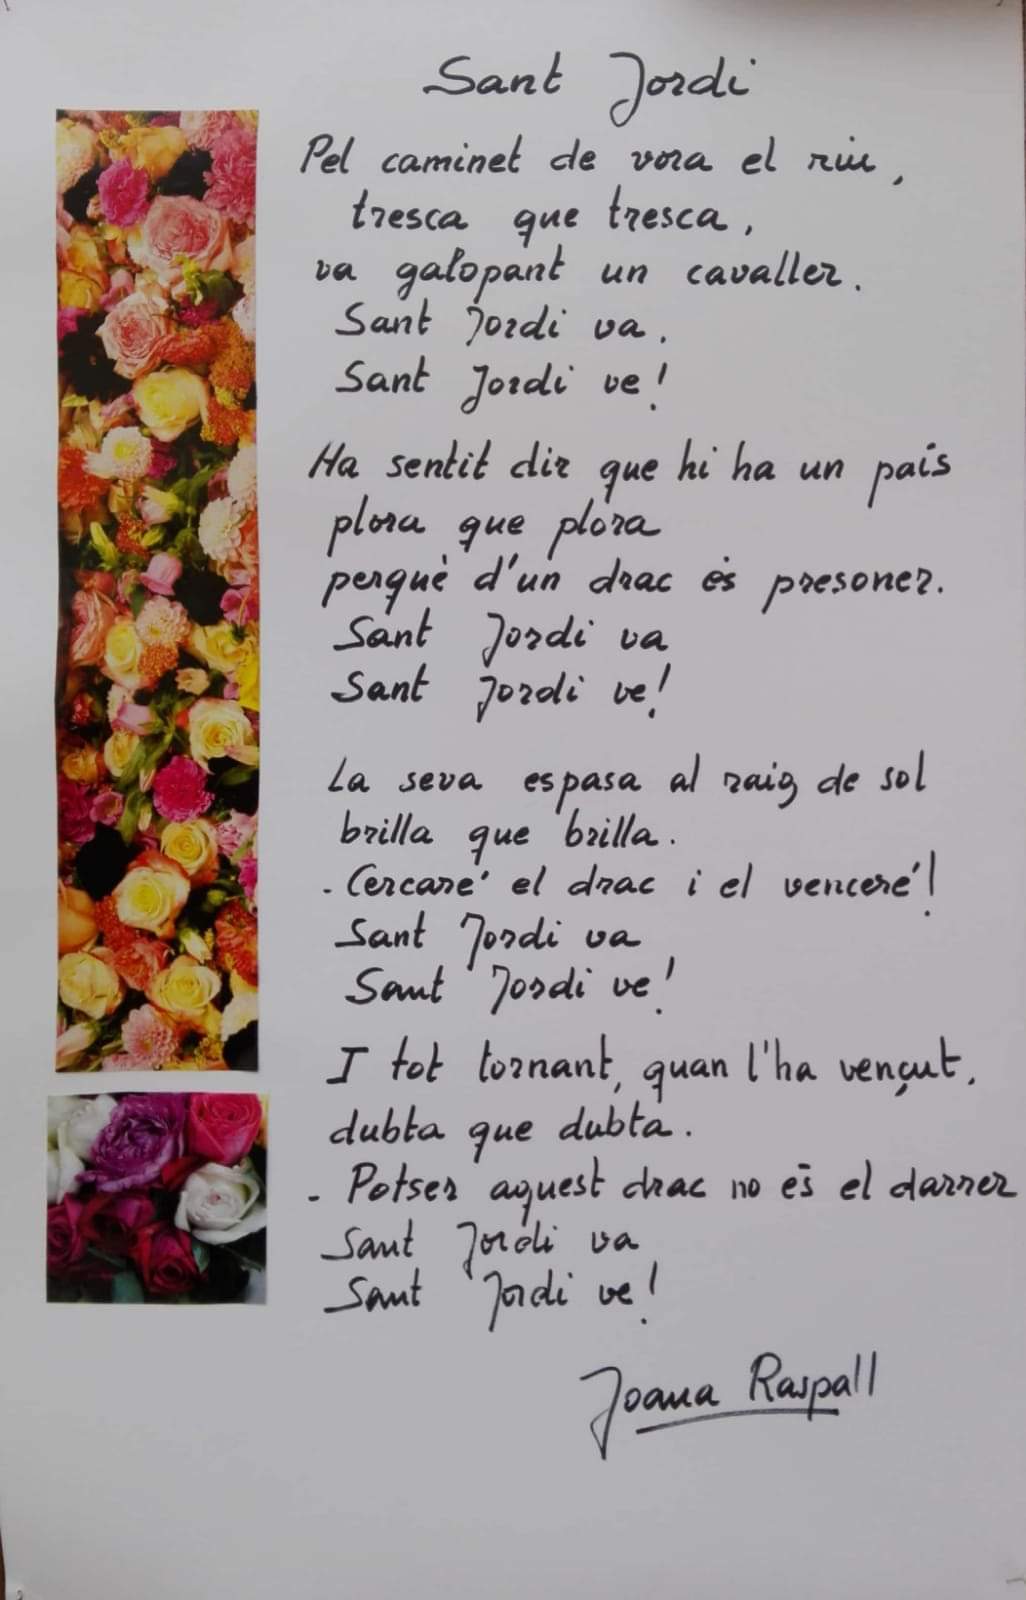 Sant Jordi
Pel caminet de vora el riu,
tresca que tresca,
va galopant un cavaller.
Sant Jordi va.
Sant Jordi ve!
Ha sentit dir que hi ha un país
plora que plora
perquè d'un drac és presoner.
Sant Jordi va
Sant Jordi ve!
La seva espasa al raig de sol
brilla que brilla.
- Cercaré el drac i el venceré!
Sant Jordi va
Sant Jordi ve!
I tot tornant, quan l'ha vençut,
dubta que dubta.
- Potser aquest drac no és el darrer
Sant Jordi va
Sant Jordi ve!
Joana Raspall